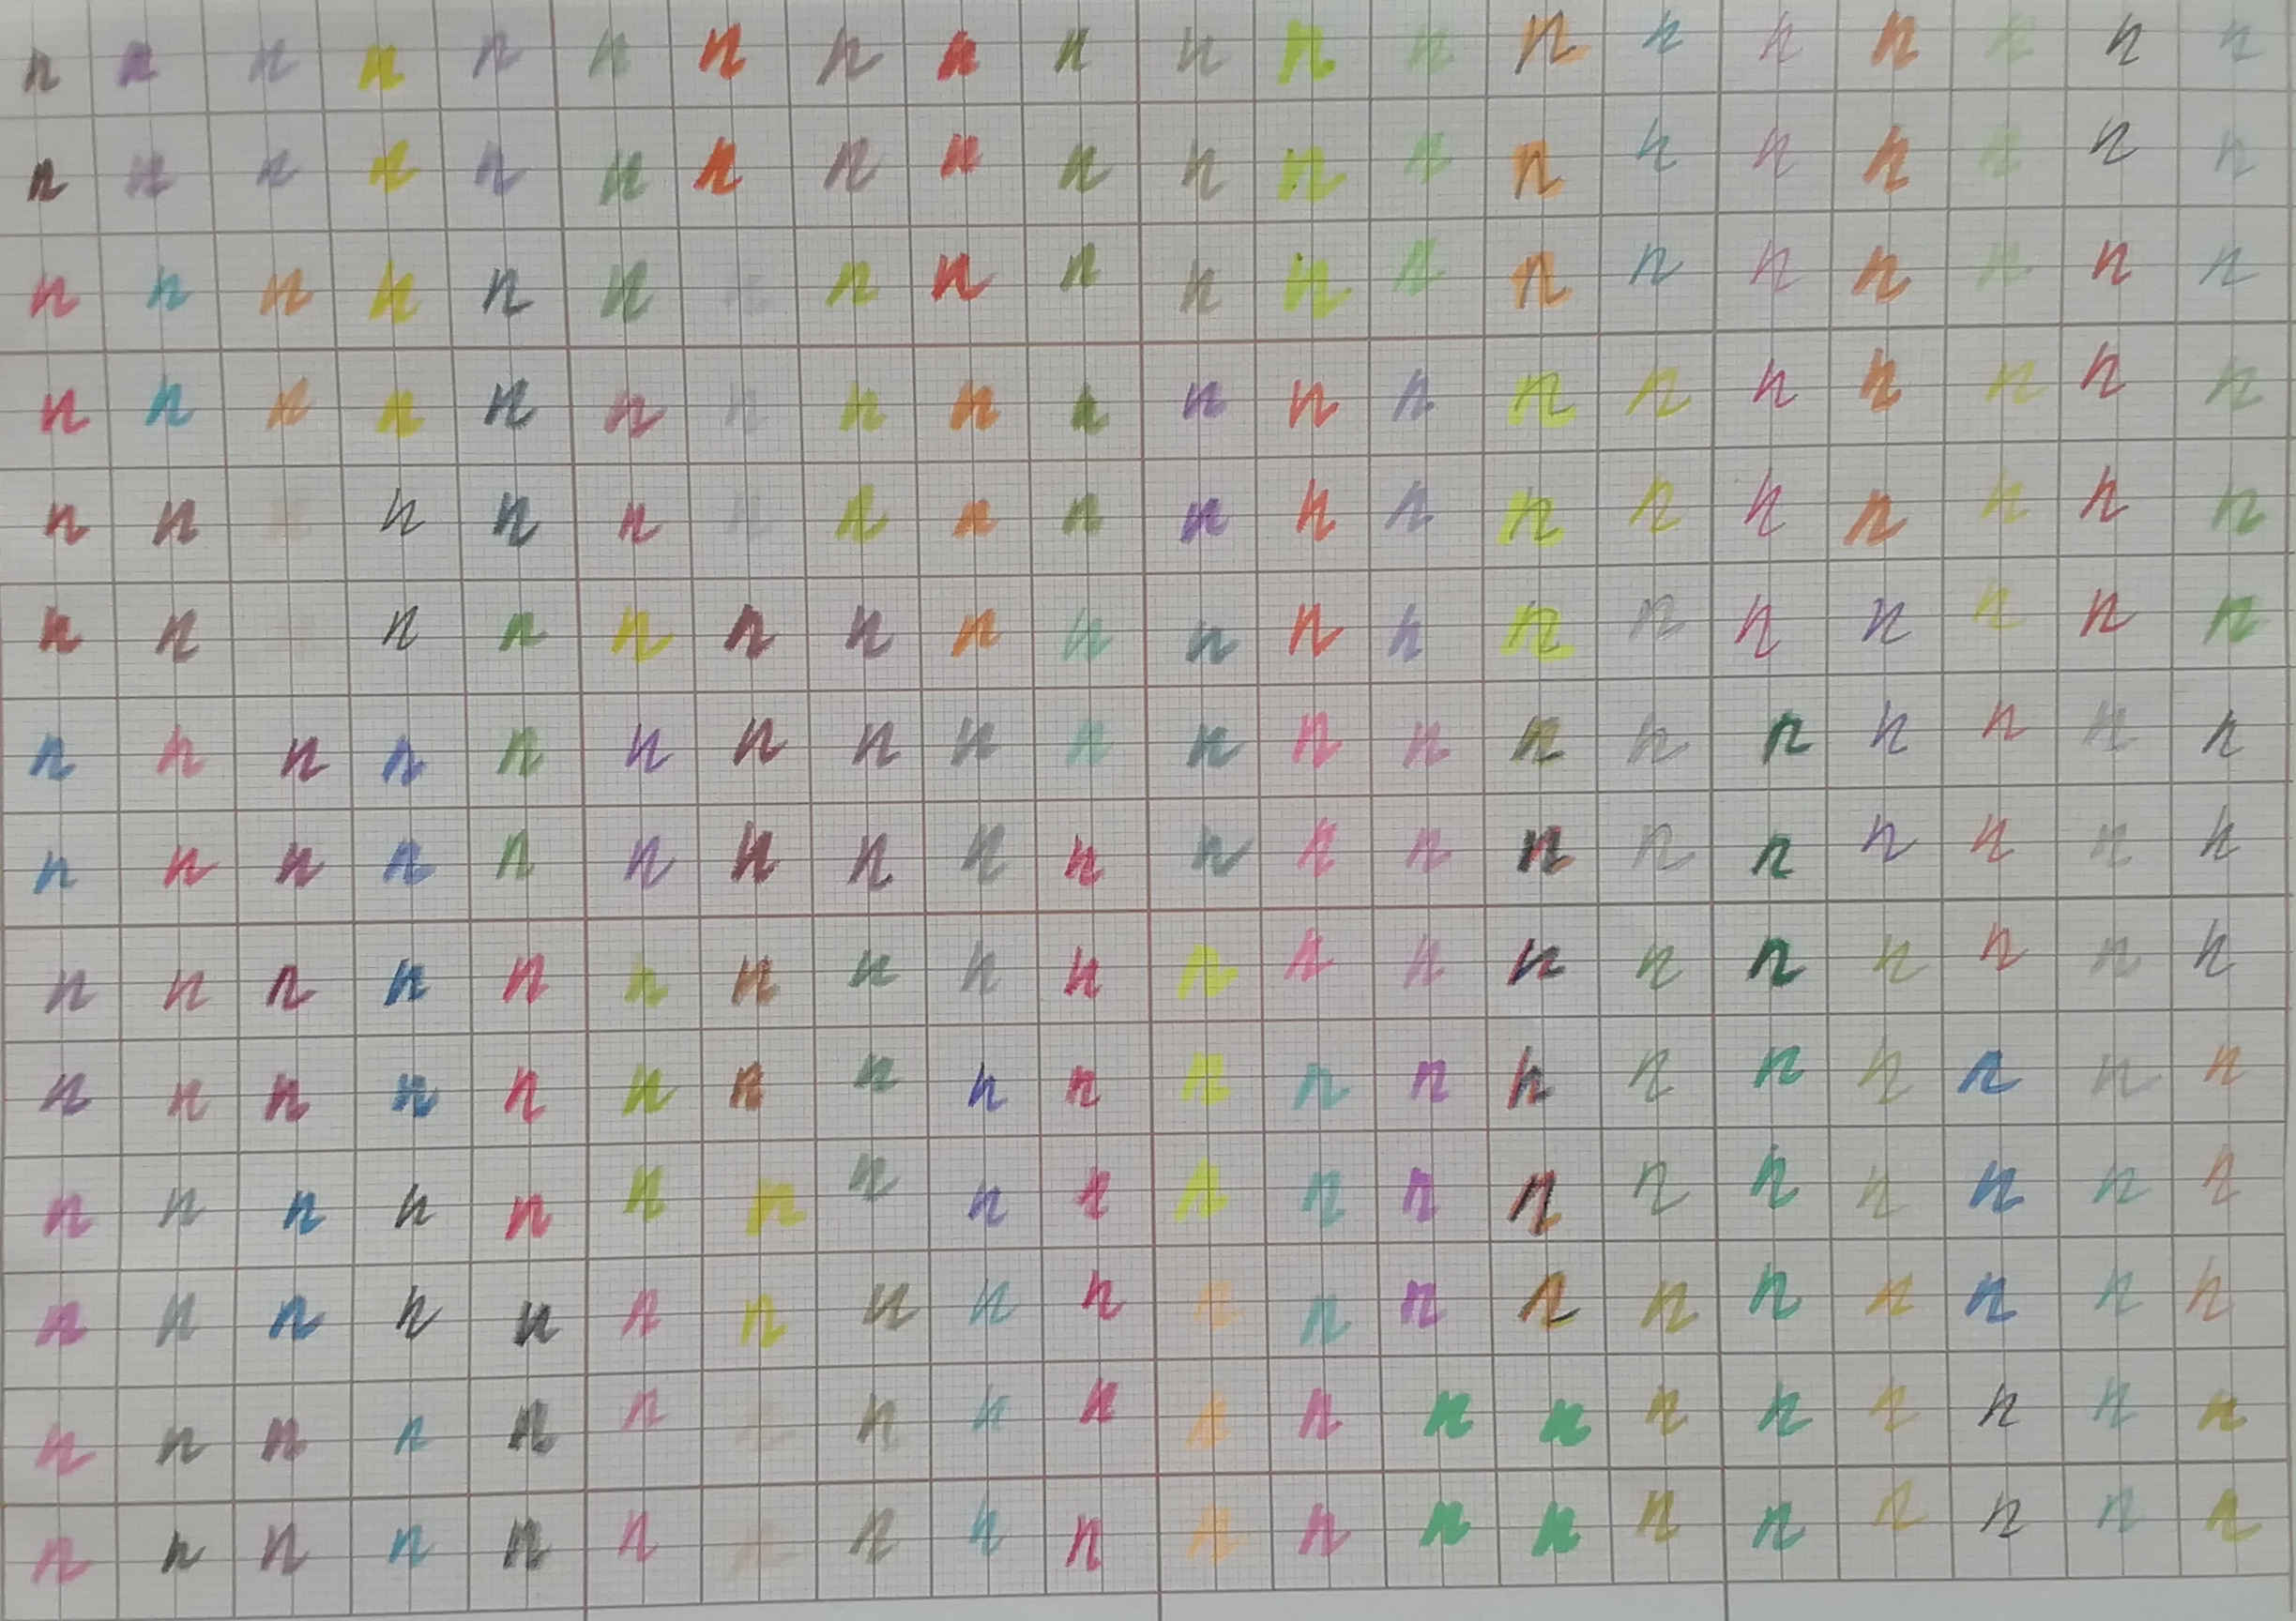 n n n n n n n n n n n n n n n n n n n n
n n n n n n n n n n n n n n n n n n n n
n n n n n n n n n n n n n n n n n n n n
n n n n n n n n n n n n n n n n n n n n
n n n n n n n n n n n n n n n n n n n n
n n n n n n n n n n n n n n n n n n n n
n n n n n n n n n n n n n n n n n n n n
n n n n n n n n n n n n n n n n n n n n
n n n n n n n n n n n n n n n n n n n n
n n n n n n n n n n n n n n n n n n n n
n n n n n n n n n n n n n n n n n n n n
n n n n n n n n n n n n n n n n n n n n
n n n n n n n n n n n n n n n n n n n n
n n n n n n n n n n n n n n n n n n n n